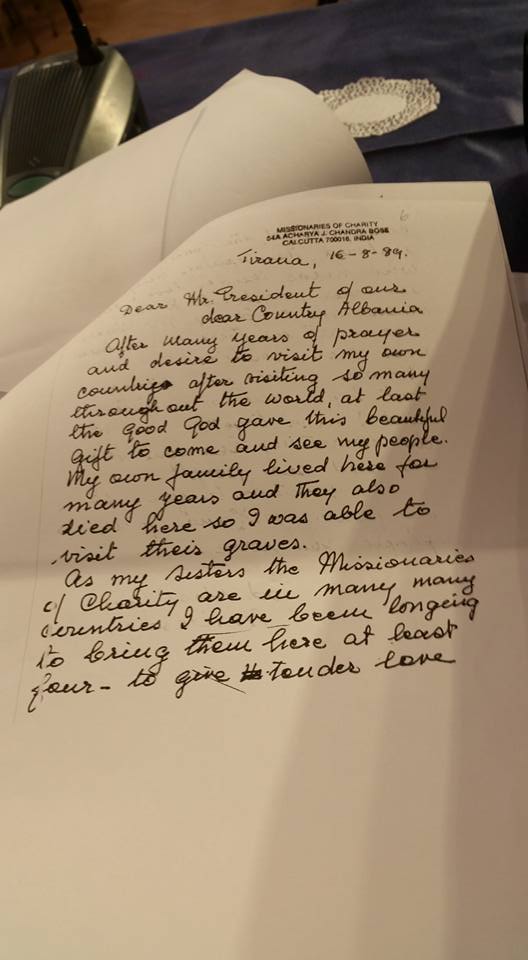 MISSIONARIES OF CHARITY
54A ACHARYA J. CHANDRA BOSE
CALCUTTA 700016, INDIA
6
Tirana, 16-8-89.
Dear Mr. President of our
dear Country Albania
After many years of prayer
and desire to visit my own
country after visiting so many
throughout the world, at last
the Good God gave this beautiful
Gift to come and see my people.
My own family lived here for
many years and they also
died here so I was able to
visit their graves.
As my Sisters the Missionaries
of Charity are in many many
countries I have been longing
to bring them here at least
four - to give tender love